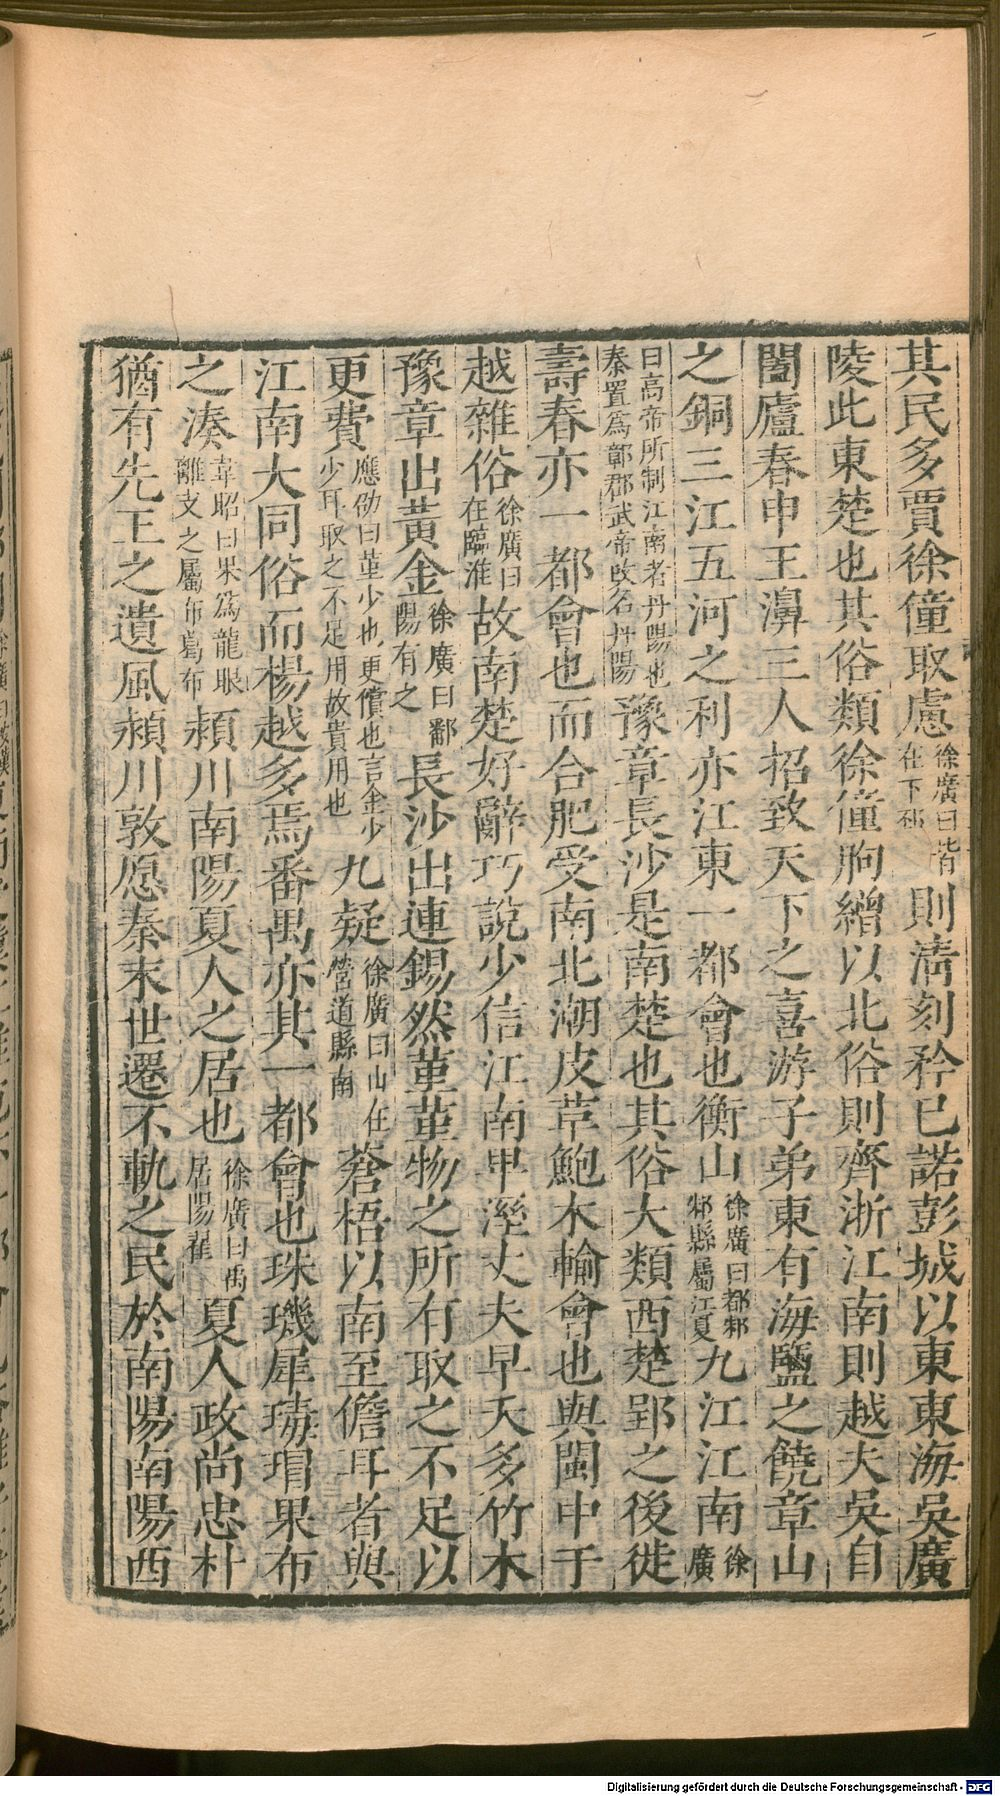 其民多賈徐僮取慮徐廣曰皆在下邳則淸刻矜已諾彭城以東東海吳廣
陵此東楚也其俗類徐僮朐繒以北俗則齊浙江南則越夫吳自
闔廬春申王濞三人招致天下之喜游子弟東有海鹽之饒章山
之銅三江五河之利亦江東一都會也衡山徐廣曰都邾邾縣屬江夏九江江南徐廣
曰高帝所制江南者丹陽也秦置爲鄣郡武帝改名丹陽豫章長沙是南楚也其俗大類西楚郢之後徙
壽春亦一都會也而合肥受南北潮皮革鮑木輸會也與閩中于
越雜俗徐廣曰在臨淮故南楚好辭巧說少信江南卑溼丈夫早夭多竹木
豫章出黃金徐廣曰鄱陽有之長沙出連錫然菫菫物之所有取之不足以
更費應劭曰菫少也更償也言金少少耳取之不足用故貴用也九疑徐廣曰山在營道縣南蒼梧以南至儋耳者與
江南大同俗而楊越多焉番禺亦其一都會也珠璣犀瑇瑁果布
之湊韋昭曰果爲龍眼離支之屬布葛布潁川南陽夏人之居也徐廣曰禹居陽翟夏人政尚忠朴
猶有先王之遺風潁川敦愿秦末世遷不軌之民於南陽南陽西
Digitalisierung gefördert durch die Deutsche Forschungsgemeinschaft - DFG